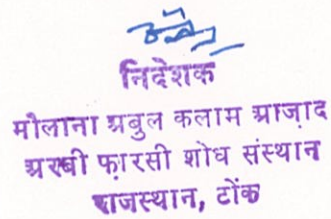 निदेशक
मौलाना अबुल कलाम आज़ाद
अरबी फ़ारसी शोध संस्थान
राजस्थान, टोंक